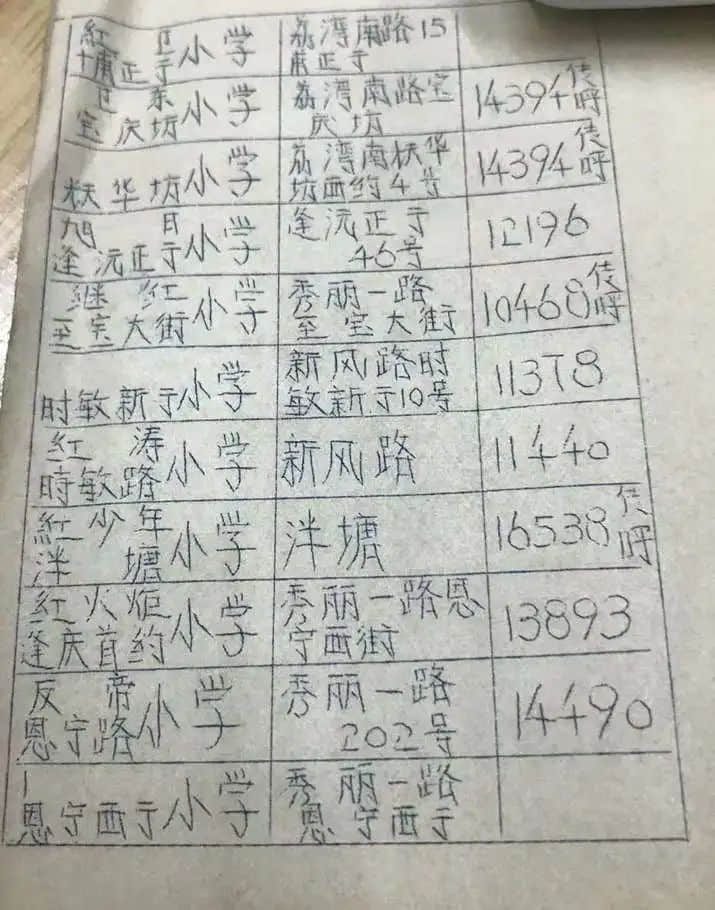 紅 卫 小学 荔湾南路15
十甫正于 甫正于
卫 东 小学 荔湾南路宝 14394 传呼
宝庆坊 庆坊
扶华坊小学 荔湾南扶华 14394 传呼
坊西约4号
旭 日 小学 逢沅正于 12196
逢沅正于 46号
继 红 小学 秀丽一路 10468 传呼
至宝大街 至宝大街
时敏新于小学 新风路时 11378
敏新于10号
红 涛 小学 新风路 11440
時敏路
紅少年 小学 泮塘 16538 传呼
泮 塘
红火炬 小学 秀丽一路恩 13893
逢庆首约 宁西街
反 帝 小学 秀丽一路 14490
恩宁路 202号
恩宁西于小学 秀丽一路
恩宁西于